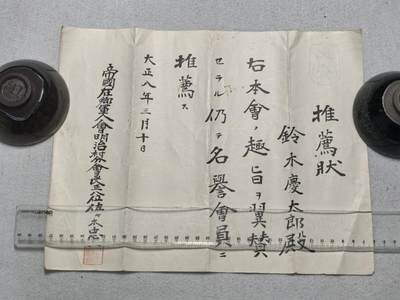 推薦狀
鈴木慶太郎殿
右本會ノ趣旨ヲ翼賛
セラル仍テ名譽會員ニ
推薦ス
大正八年三月十日
帝國在郷軍人會明治村分會長